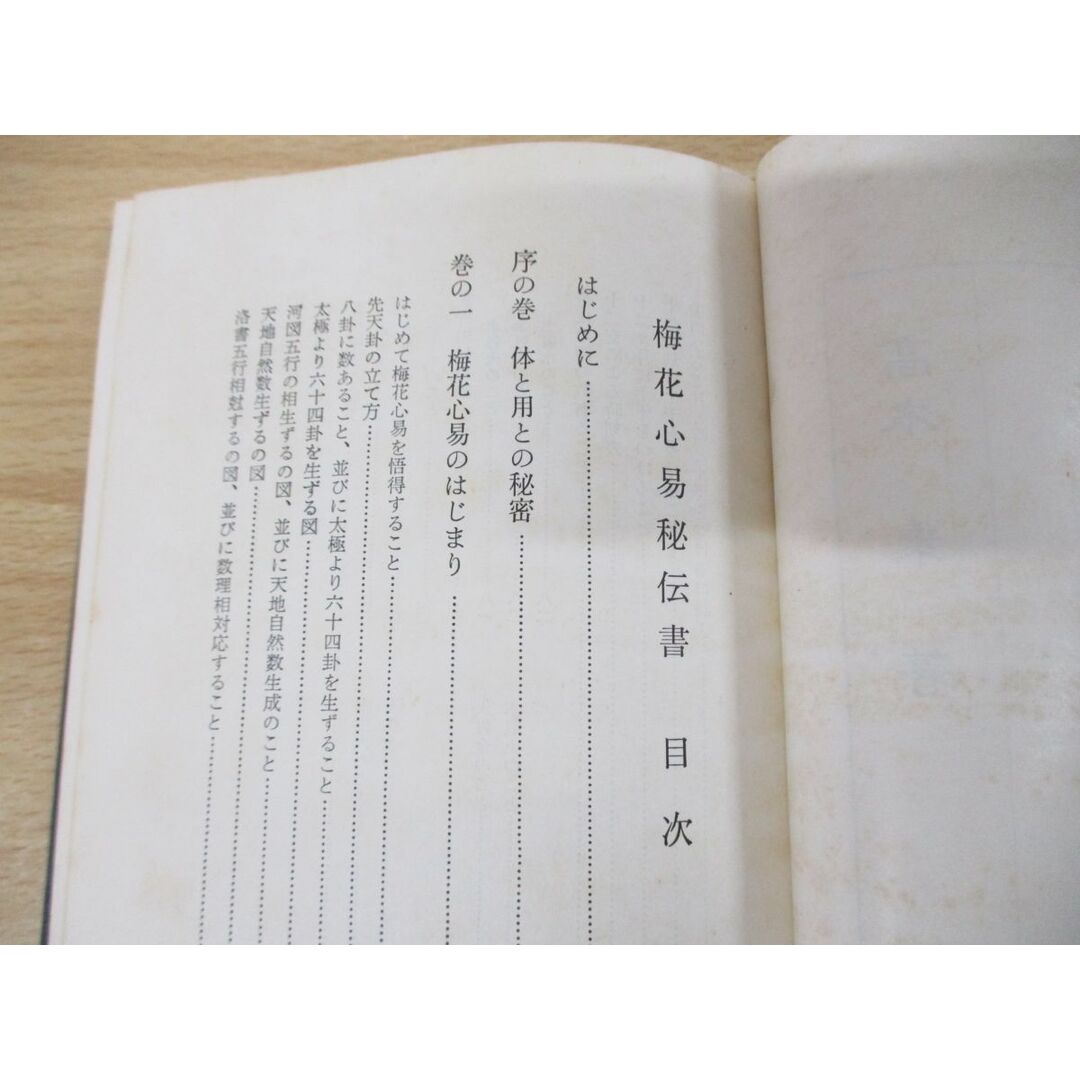 梅花心易秘伝書 目次
はじめに
序の巻 体と用との秘密
巻の一 梅花心易のはじまり
はじめて梅花心易を悟得すること
先天卦の立て方
八卦に数あること、並びに太極より六十四卦を生ずること
太極より六十四卦を生ずる図
河図五行の相生ずるの図、並びに天地自然数生成のこと
天地自然数生ずるの図
洛書五行相尅するの図、並びに数理相対応すること